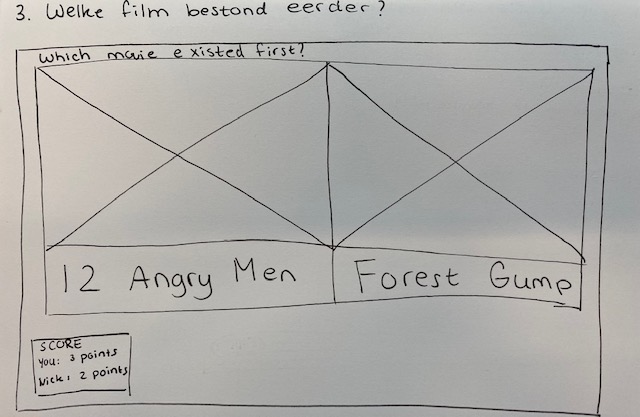 3. Welke film bestond eerder?
Which movie existed first?
12 Angry Men
Forest Gump
SCORE
You: 3 points
Nick: 2 points